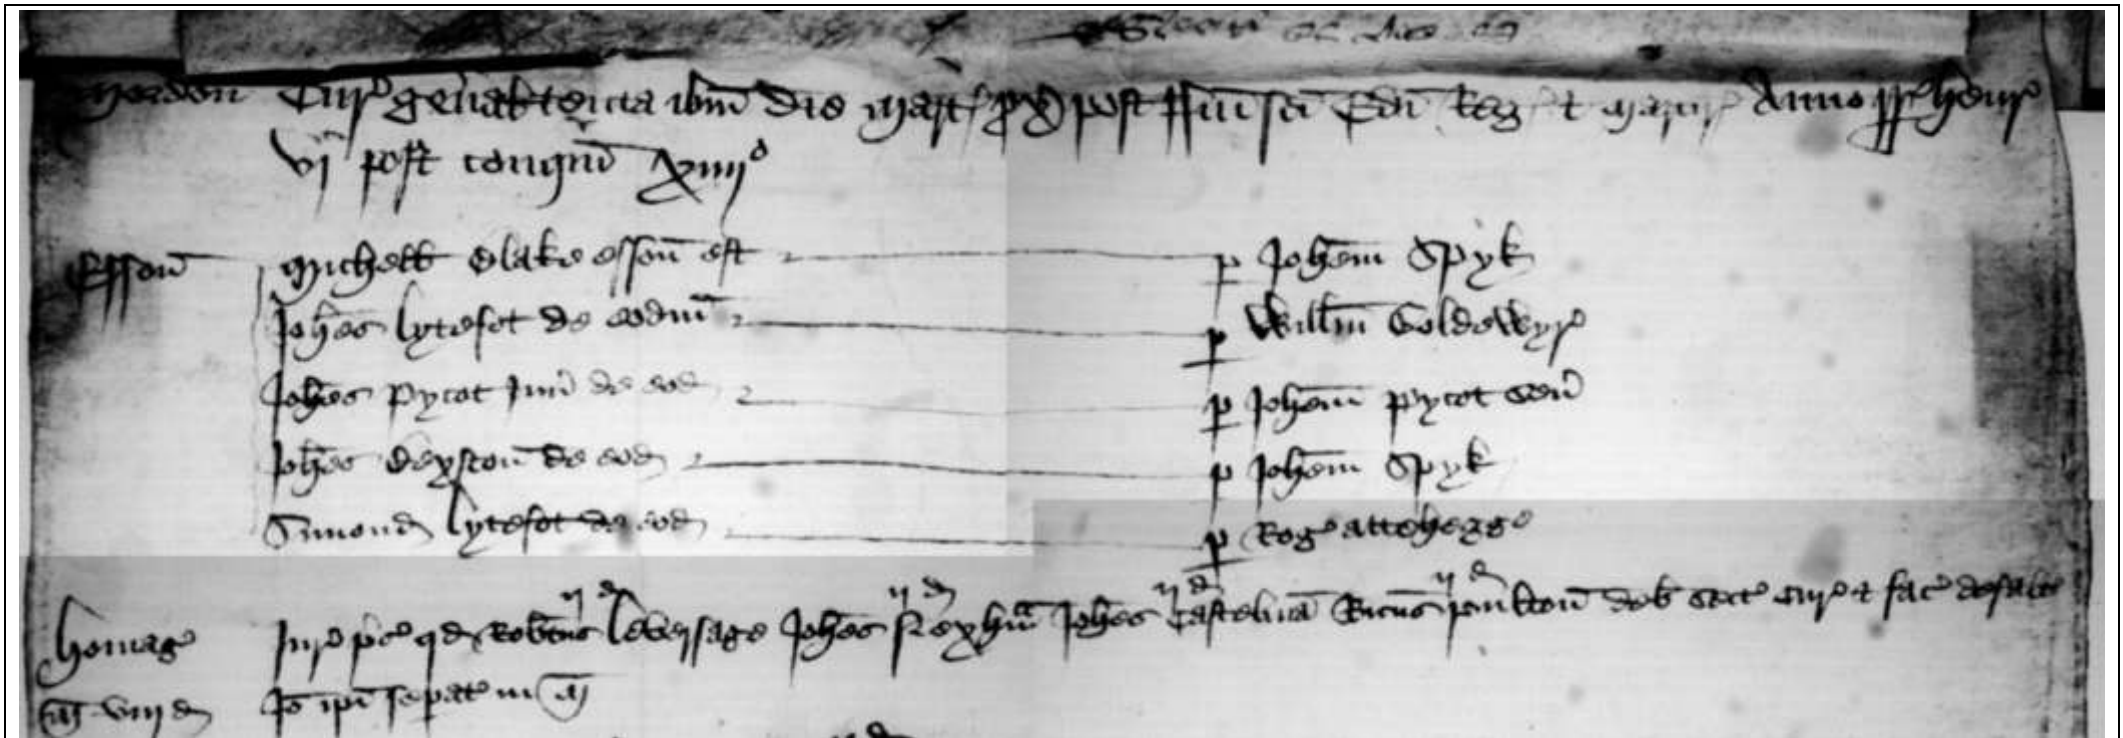 Mordon Cur' gen'al tenta ib'm die Mart' p'x' post ffm' s'ci Edi' Reg' et martir' Anno rr' henr'
vj^ti post conqm' xiiij^o
Esson' Michell Blake esson' est p Joh'em Spyk
Joh'es lytefot de eodm' p Will'm Goldewyr'
Joh'es Pycot Jun' de eod' p Joh'em Pycot sen'
Joh'es Deyston' de eod' p Joh'em Spyk
Simond' lytefot de eod' p Rog' attehegge
ij d ij d ij d ij d
homag' Jur' p's' qd Rob'tus leversage Joh'es Joh'es Castelma' Ric'us deb' sect' cur' et fac' defalt'
m'ia viij d Jo' ip'i sep'at' in m'ia